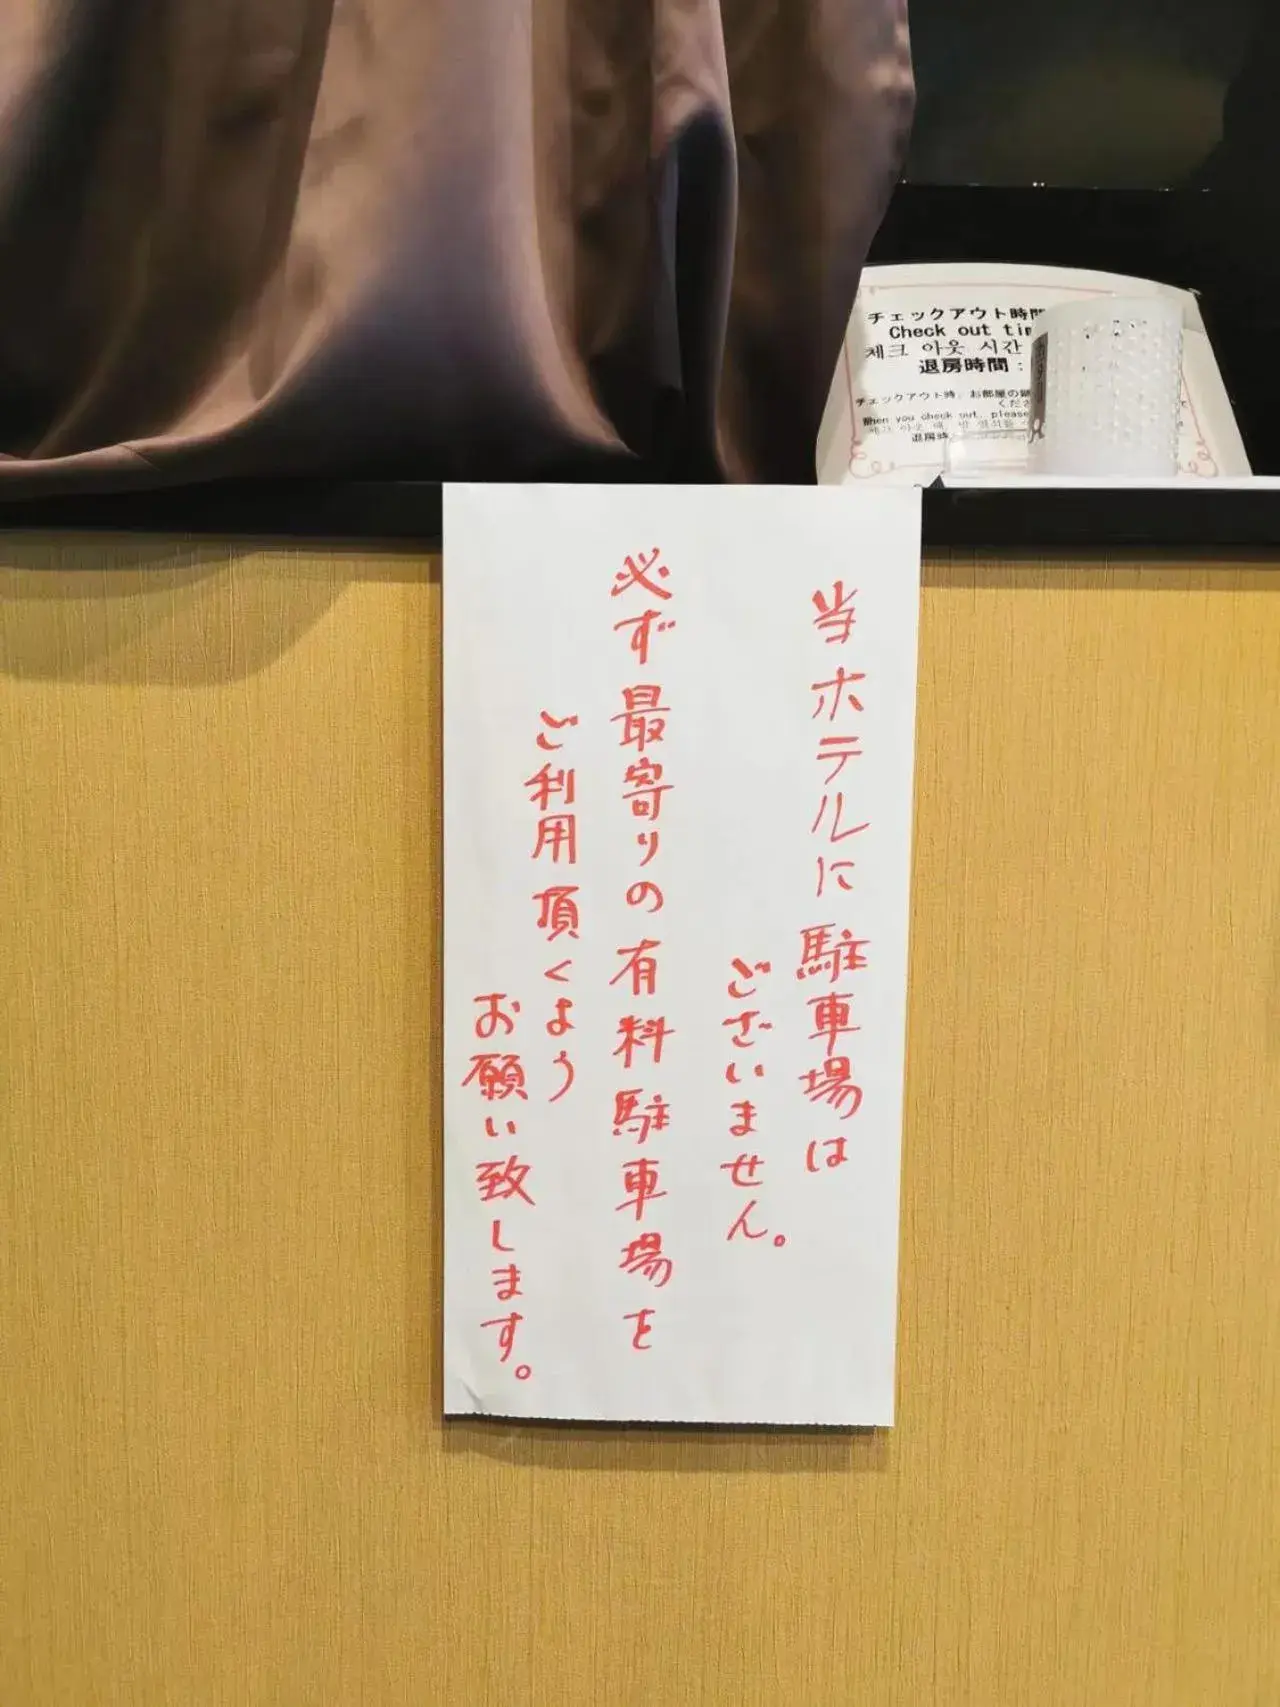 当ホテルに駐車場は
ございません。
必ず最寄りの有料駐車場を
ご利用頂くよう
お願い致します。
チェックアウト時間
Check out
체크 아웃 시간
退房時間：
チェックアウト時、お部屋の鍵
くださ
When you check out, please
退房時